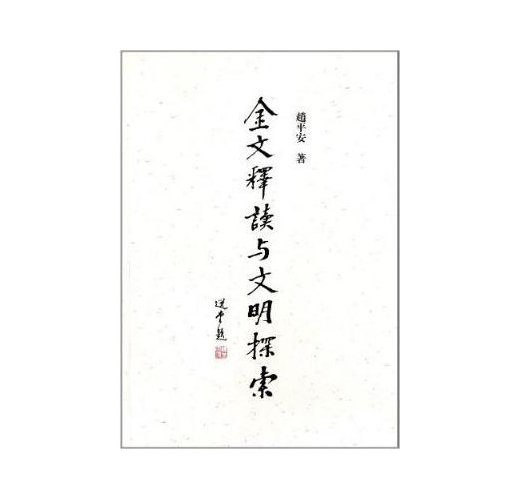 趙平安 著
金文釋讀与文明探索
选堂題